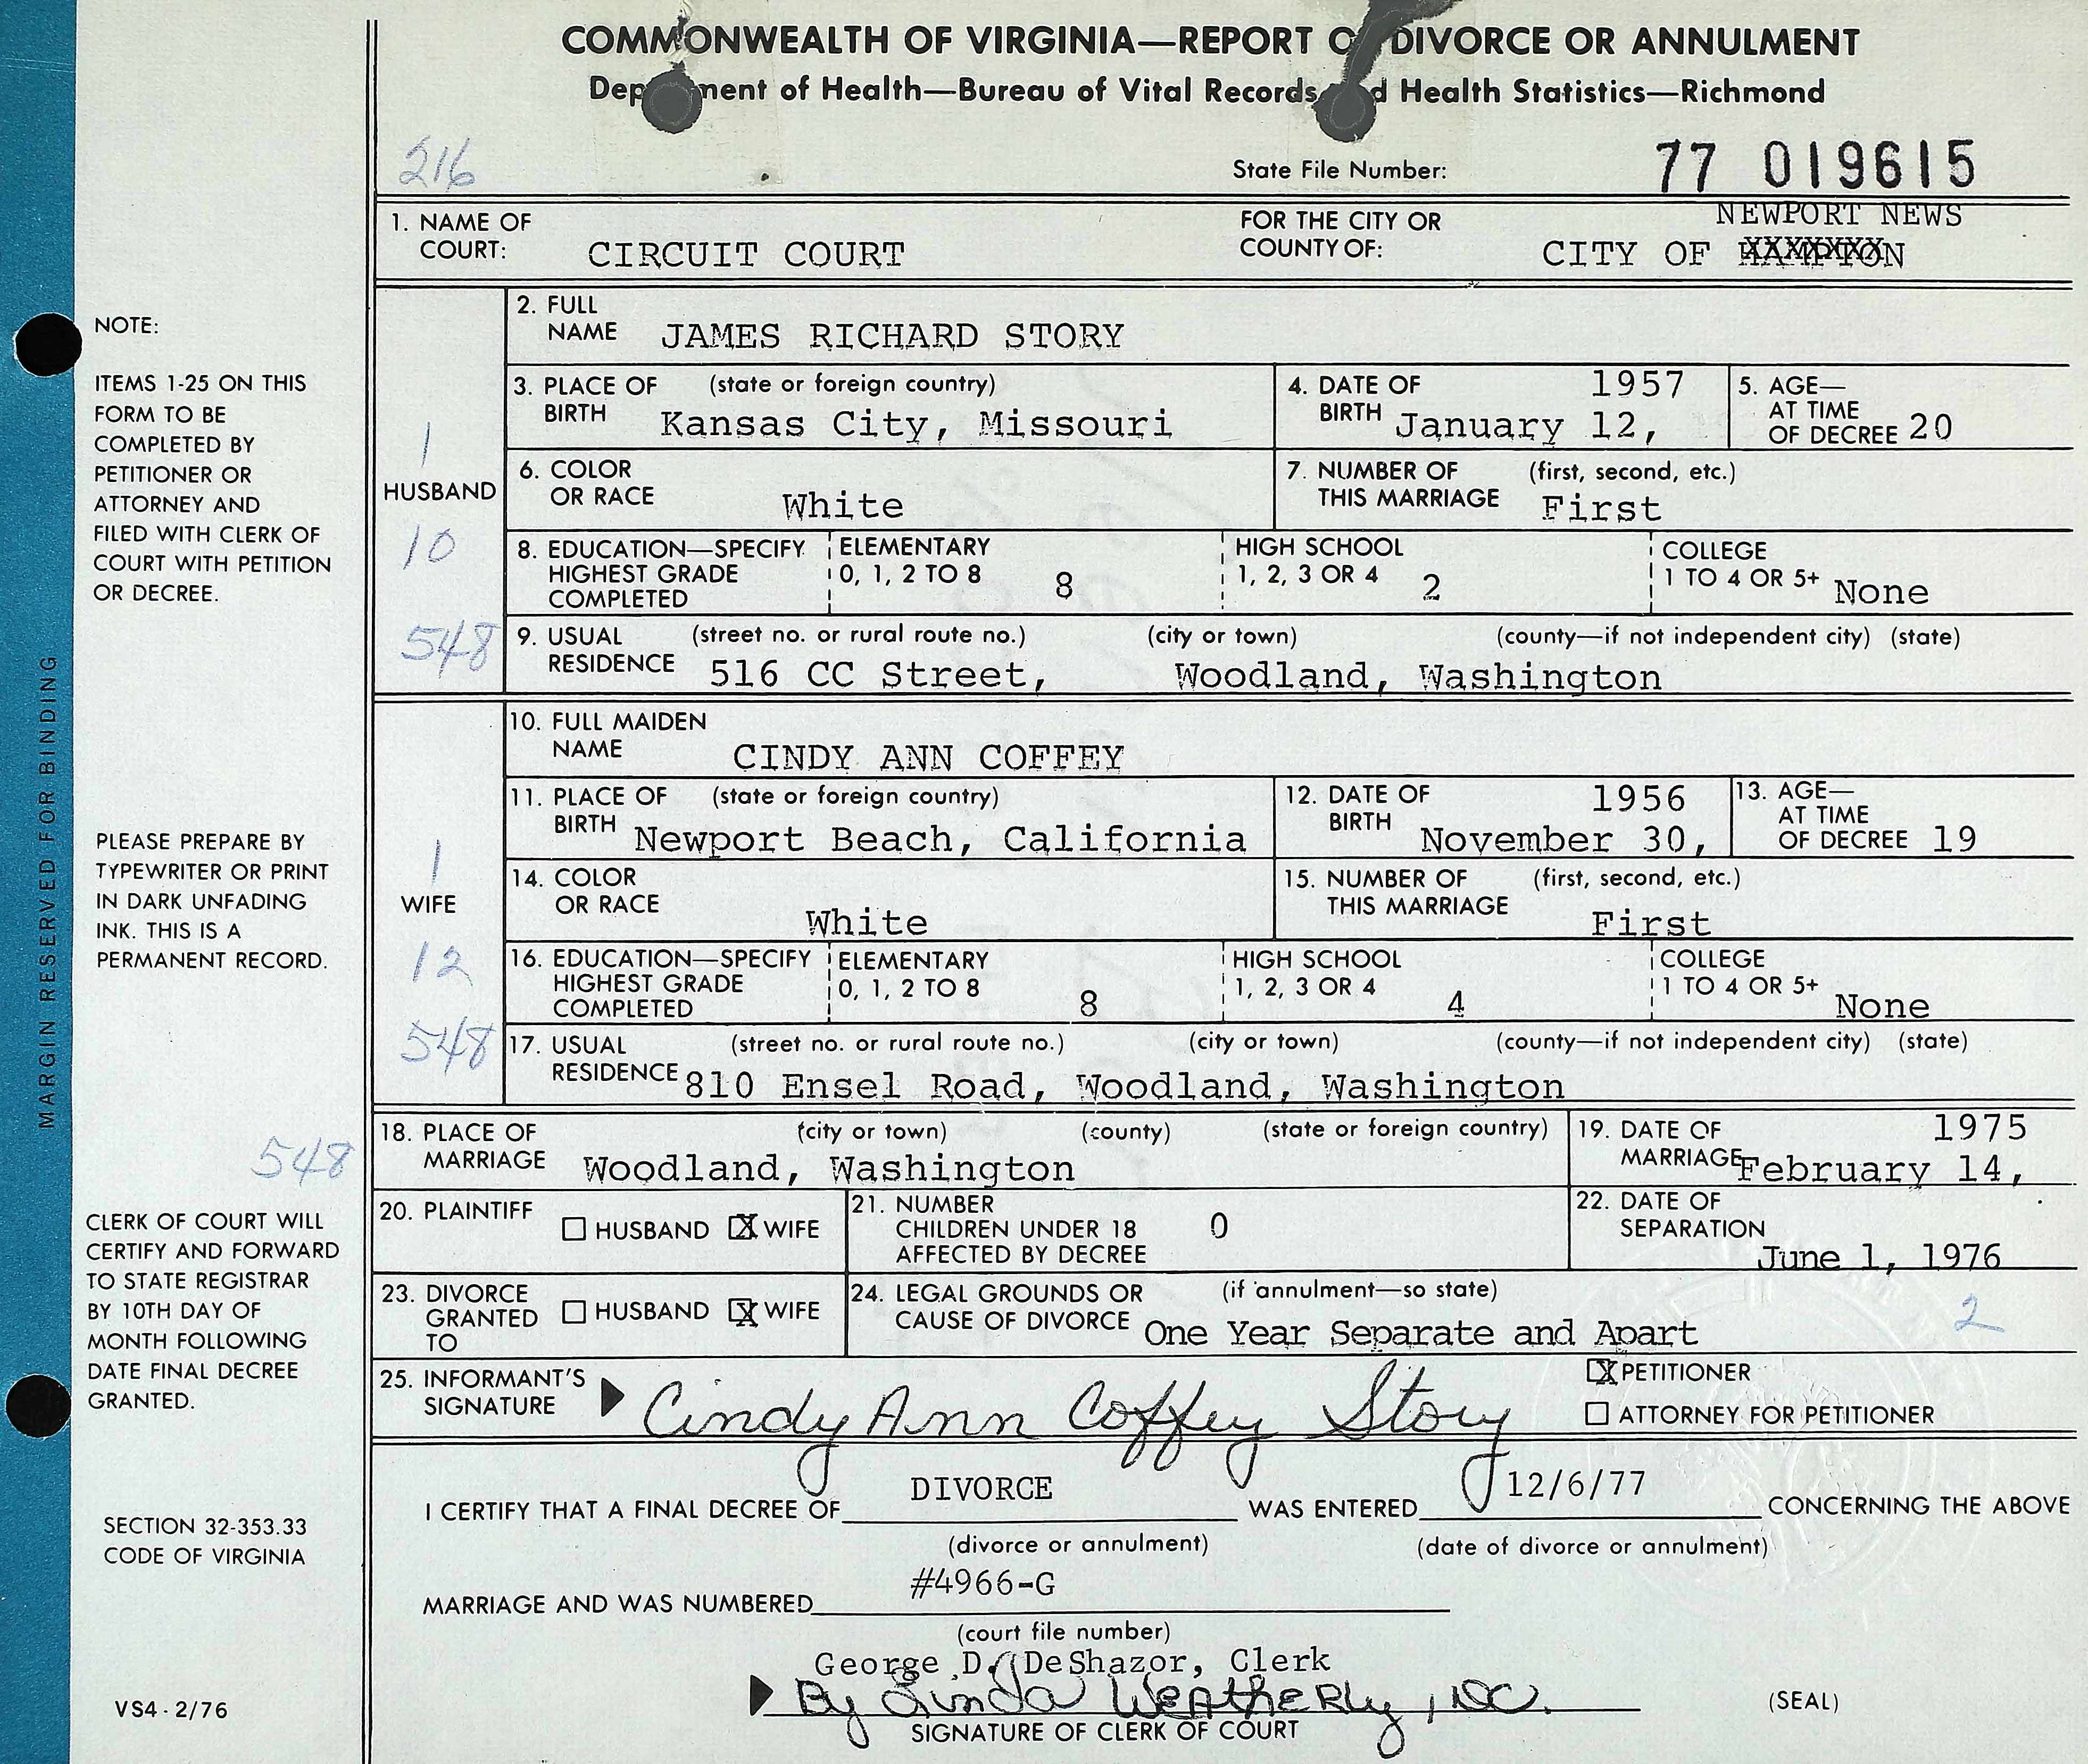 COMMONWEALTH OF VIRGINIA—REPORT OF DIVORCE OR ANNULMENT
Department of Health—Bureau of Vital Records and Health Statistics—Richmond
216
State File Number: 77 019615
1. NAME OF COURT: CIRCUIT COURT
FOR THE CITY OR COUNTY OF: CITY OF HAMPTON NEWPORT NEWS
HUSBAND
1
10
548
2. FULL NAME JAMES RICHARD STORY
3. PLACE OF BIRTH (state or foreign country) Kansas City, Missouri
4. DATE OF BIRTH January 12, 1957
5. AGE—AT TIME OF DECREE 20
6. COLOR OR RACE White
7. NUMBER OF THIS MARRIAGE (first, second, etc.) First
8. EDUCATION—SPECIFY HIGHEST GRADE COMPLETED
ELEMENTARY 0, 1, 2 TO 8 8
HIGH SCHOOL 1, 2, 3 OR 4 2
COLLEGE 1 TO 4 OR 5+ None
9. USUAL RESIDENCE (street no. or rural route no.) (city or town) (county—if not independent city) (state)
516 CC Street, Woodland, Washington
WIFE
1
12
548
10. FULL MAIDEN NAME CINDY ANN COFFEY
11. PLACE OF BIRTH (state or foreign country) Newport Beach, California
12. DATE OF BIRTH November 30, 1956
13. AGE—AT TIME OF DECREE 19
14. COLOR OR RACE White
15. NUMBER OF THIS MARRIAGE (first, second, etc.) First
16. EDUCATION—SPECIFY HIGHEST GRADE COMPLETED
ELEMENTARY 0, 1, 2 TO 8 8
HIGH SCHOOL 1, 2, 3 OR 4 4
COLLEGE 1 TO 4 OR 5+ None
17. USUAL RESIDENCE (street no. or rural route no.) (city or town) (county—if not independent city) (state)
810 Ensel Road, Woodland, Washington
548
18. PLACE OF MARRIAGE (city or town) (county) (state or foreign country)
Woodland, Washington
19. DATE OF MARRIAGE February 14, 1975
20. PLAINTIFF HUSBAND X WIFE
21. NUMBER CHILDREN UNDER 18 AFFECTED BY DECREE 0
22. DATE OF SEPARATION June 1, 1976
23. DIVORCE GRANTED TO HUSBAND X WIFE
24. LEGAL GROUNDS OR CAUSE OF DIVORCE (if annulment—so state) One Year Separate and Apart
2
25. INFORMANT'S SIGNATURE Cindy Ann Coffey Story
X PETITIONER
ATTORNEY FOR PETITIONER
I CERTIFY THAT A FINAL DECREE OF DIVORCE WAS ENTERED 12/6/77 CONCERNING THE ABOVE
(divorce or annulment) (date of divorce or annulment)
MARRIAGE AND WAS NUMBERED #4966-G
(court file number)
George D. DeShazor, Clerk
By Linda Weatherly, DC.
SIGNATURE OF CLERK OF COURT
(SEAL)
NOTE:
ITEMS 1-25 ON THIS
FORM TO BE
COMPLETED BY
PETITIONER OR
ATTORNEY AND
FILED WITH CLERK OF
COURT WITH PETITION
OR DECREE.
PLEASE PREPARE BY
TYPEWRITER OR PRINT
IN DARK UNFADING
INK. THIS IS A
PERMANENT RECORD.
CLERK OF COURT WILL
CERTIFY AND FORWARD
TO STATE REGISTRAR
BY 10TH DAY OF
MONTH FOLLOWING
DATE FINAL DECREE
GRANTED.
SECTION 32-353.33
CODE OF VIRGINIA
VS4 - 2/76
MARGIN RESERVED FOR BINDING